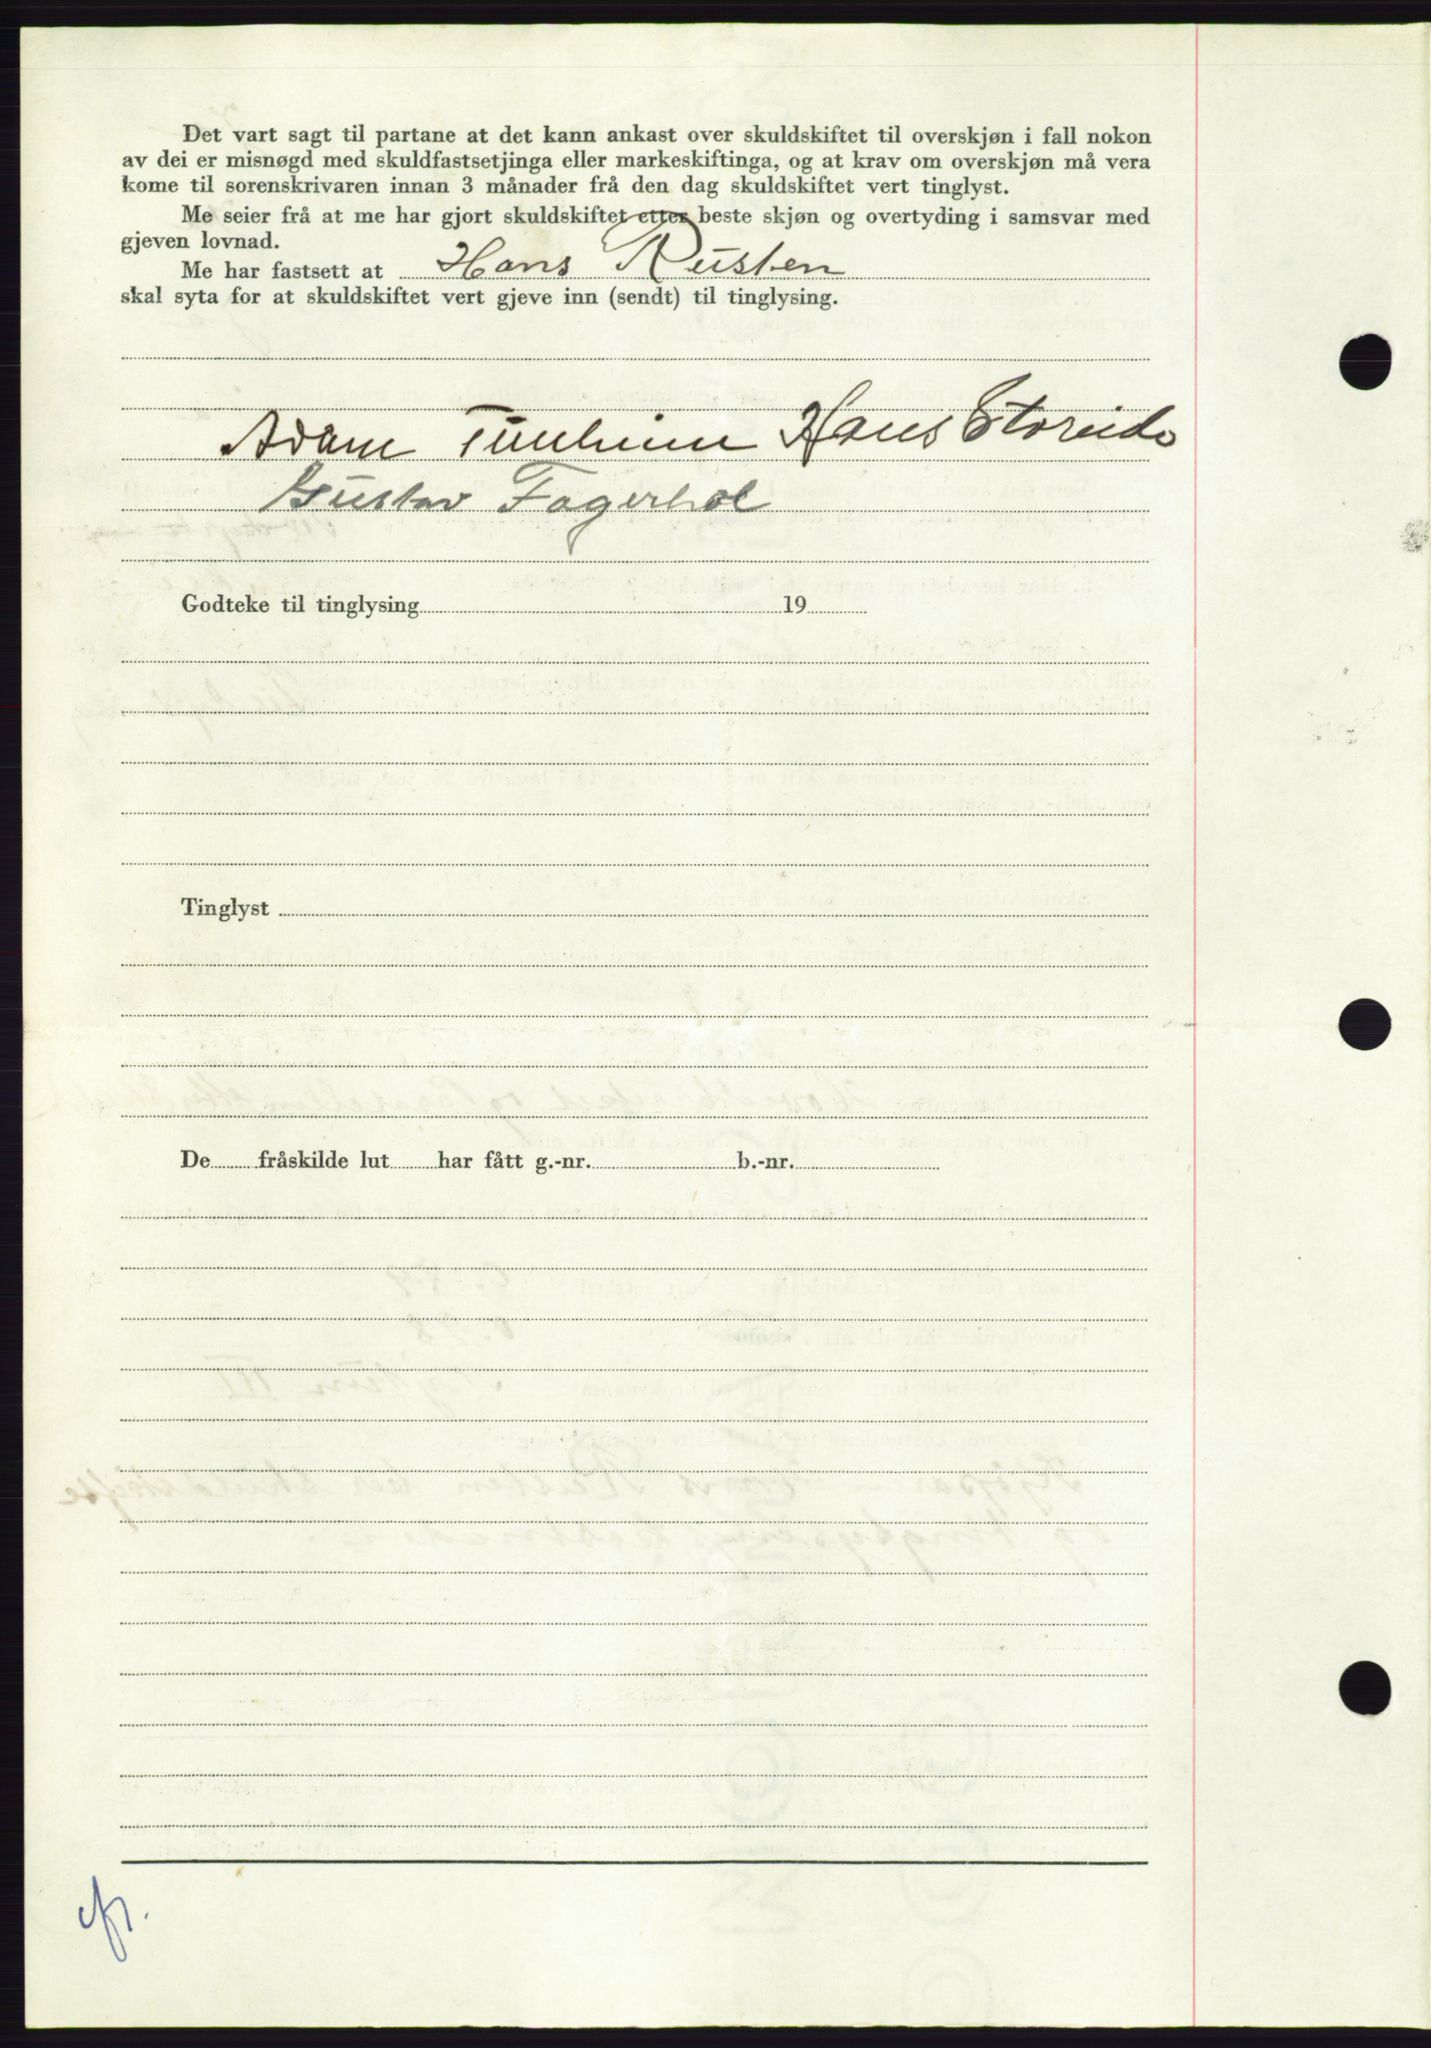 Det vart sagt til partane at det kann ankast over skuldskiftet til overskjøn i fall nokon
av dei er misnøgd med skuldfastsetjinga eller markeskiftinga, og at krav om overskjøn må vera
kome til sorenskrivaren innan 3 månader frå den dag skuldskiftet vert tinglyst.
Me seier frå at me har gjort skuldskiftet etter beste skjøn og overtyding i samsvar med
gjeven lovnad.
Me har fastsett at Hans Rusten
skal syta for at skuldskiftet vert gjeve inn (sendt) til tinglysing.
Adam Tunheim Hans Storeide
Gustav Fagerhol
Godteke til tinglysing 19
Tinglyst
De fråskilde lut har fått g.-nr. b.-nr.